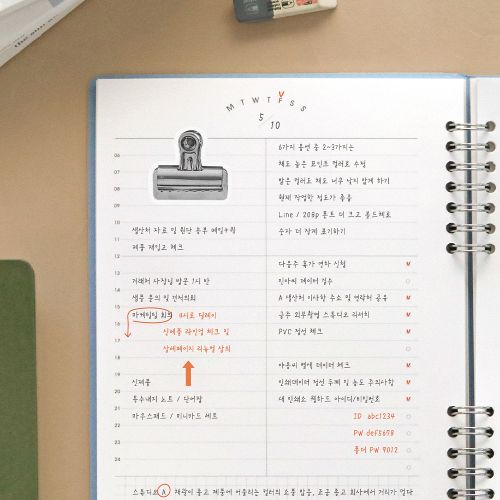 M T W T F S S
5/10
06
07
08
09
10
11
12
13
14
15
16
17
18
19
20
21
22
23
24
생산처 자료 및 원단 종류 메일+월
제품 재입고 체크
거래처 사장님 방문 1시 반
샘플 문의 및 견적의뢰
마케팅팀 회의 4시로 딜레이
신제품 라인업 체크 및
상세페이지 리뉴얼 상의
신제품
특수내지 노트 / 단어장
마우스패드 / 미니카드 세트
6가지 옵션 중 2~3가지는
채도 높은 포인트 컬러로 수정
밝은 컬러도 채도 너무 낮지 않게 하기
현재 작업한 정도가 좋음
Line / 20g 폰트 더 크고 볼드체로
숫자 더 작게 표기하기
다음주 휴가 연차 신청
민아씨 데이터 접수
A 생산처 이사함 주소 및 연락처 공유
금주 외부촬영 스튜디오 리서치
PVC 점선 체크
마음씨 명세 데이터 체크
인쇄데이터 점선 두께 및 농도 주의사항
새 인쇄소 웹하드 아이디/비밀번호
ID abc1234
PW def5678
폴더 PW 9012
스튜디오 A 채광이 좋고 제품에 어울리는 컬러의 소품 많음, 조금 좁고 회사에서 거리가 멀다